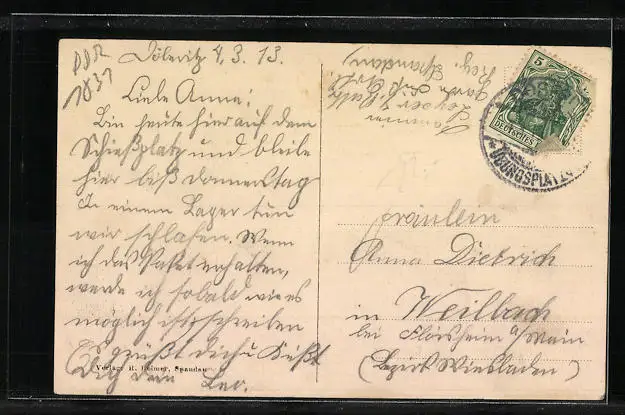 Döberitz 4.3.13.
Liebe Anna!
Bin heute hier auf dem
Schießplatz und bleibe
hier biß Donnerstag
In einem Lager tun
wir schlafen. Wenn
ich das Paket erhalten,
werde ich sobald wie es
möglich ist, schreiben
Es grüßt dich u Küßt
Dich dein Leo.
Verlag: R. Reimer, Spandau
Spandau)
5
Deutsches
ÜBUNGSPLATZ
Fräulein
Anna Dietrich
in Weilbach
bei Flörsheim a/Main
(Bezirk Wiesbaden)